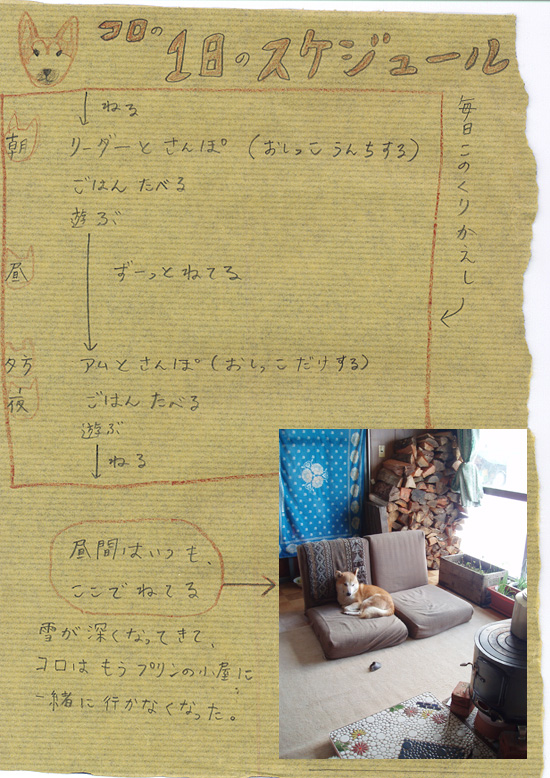 コロの1日のスケジュール
ねる
朝 リーダーと さんぽ (おしっこ うんちする)
ごはん たべる
遊ぶ
昼 ずーっと ねてる
夕方 アムと さんぽ (おしっこ だけする)
夜 ごはん たべる
遊ぶ
ねる
毎日このくりかえし
昼間はいつも、
ここで ねてる
雪が 深くなってきて、
コロは もう プリンの小屋に
一緒に 行かなくなった。